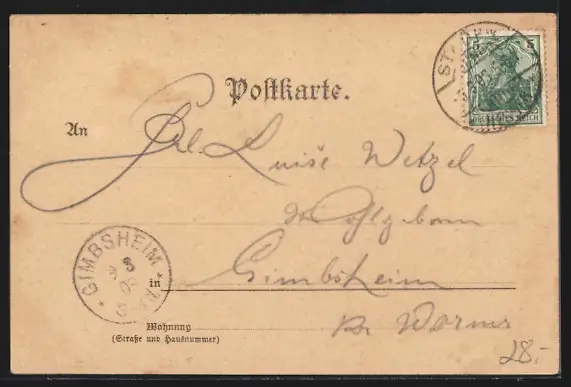 Postkarte.
An Frl. Luise Wetzel
Gimbsheim
in
Br Worms
Wohnung
(Straße und Hausnummer)
GIMBSHEIM
DEUTSCHES REICH
28.-